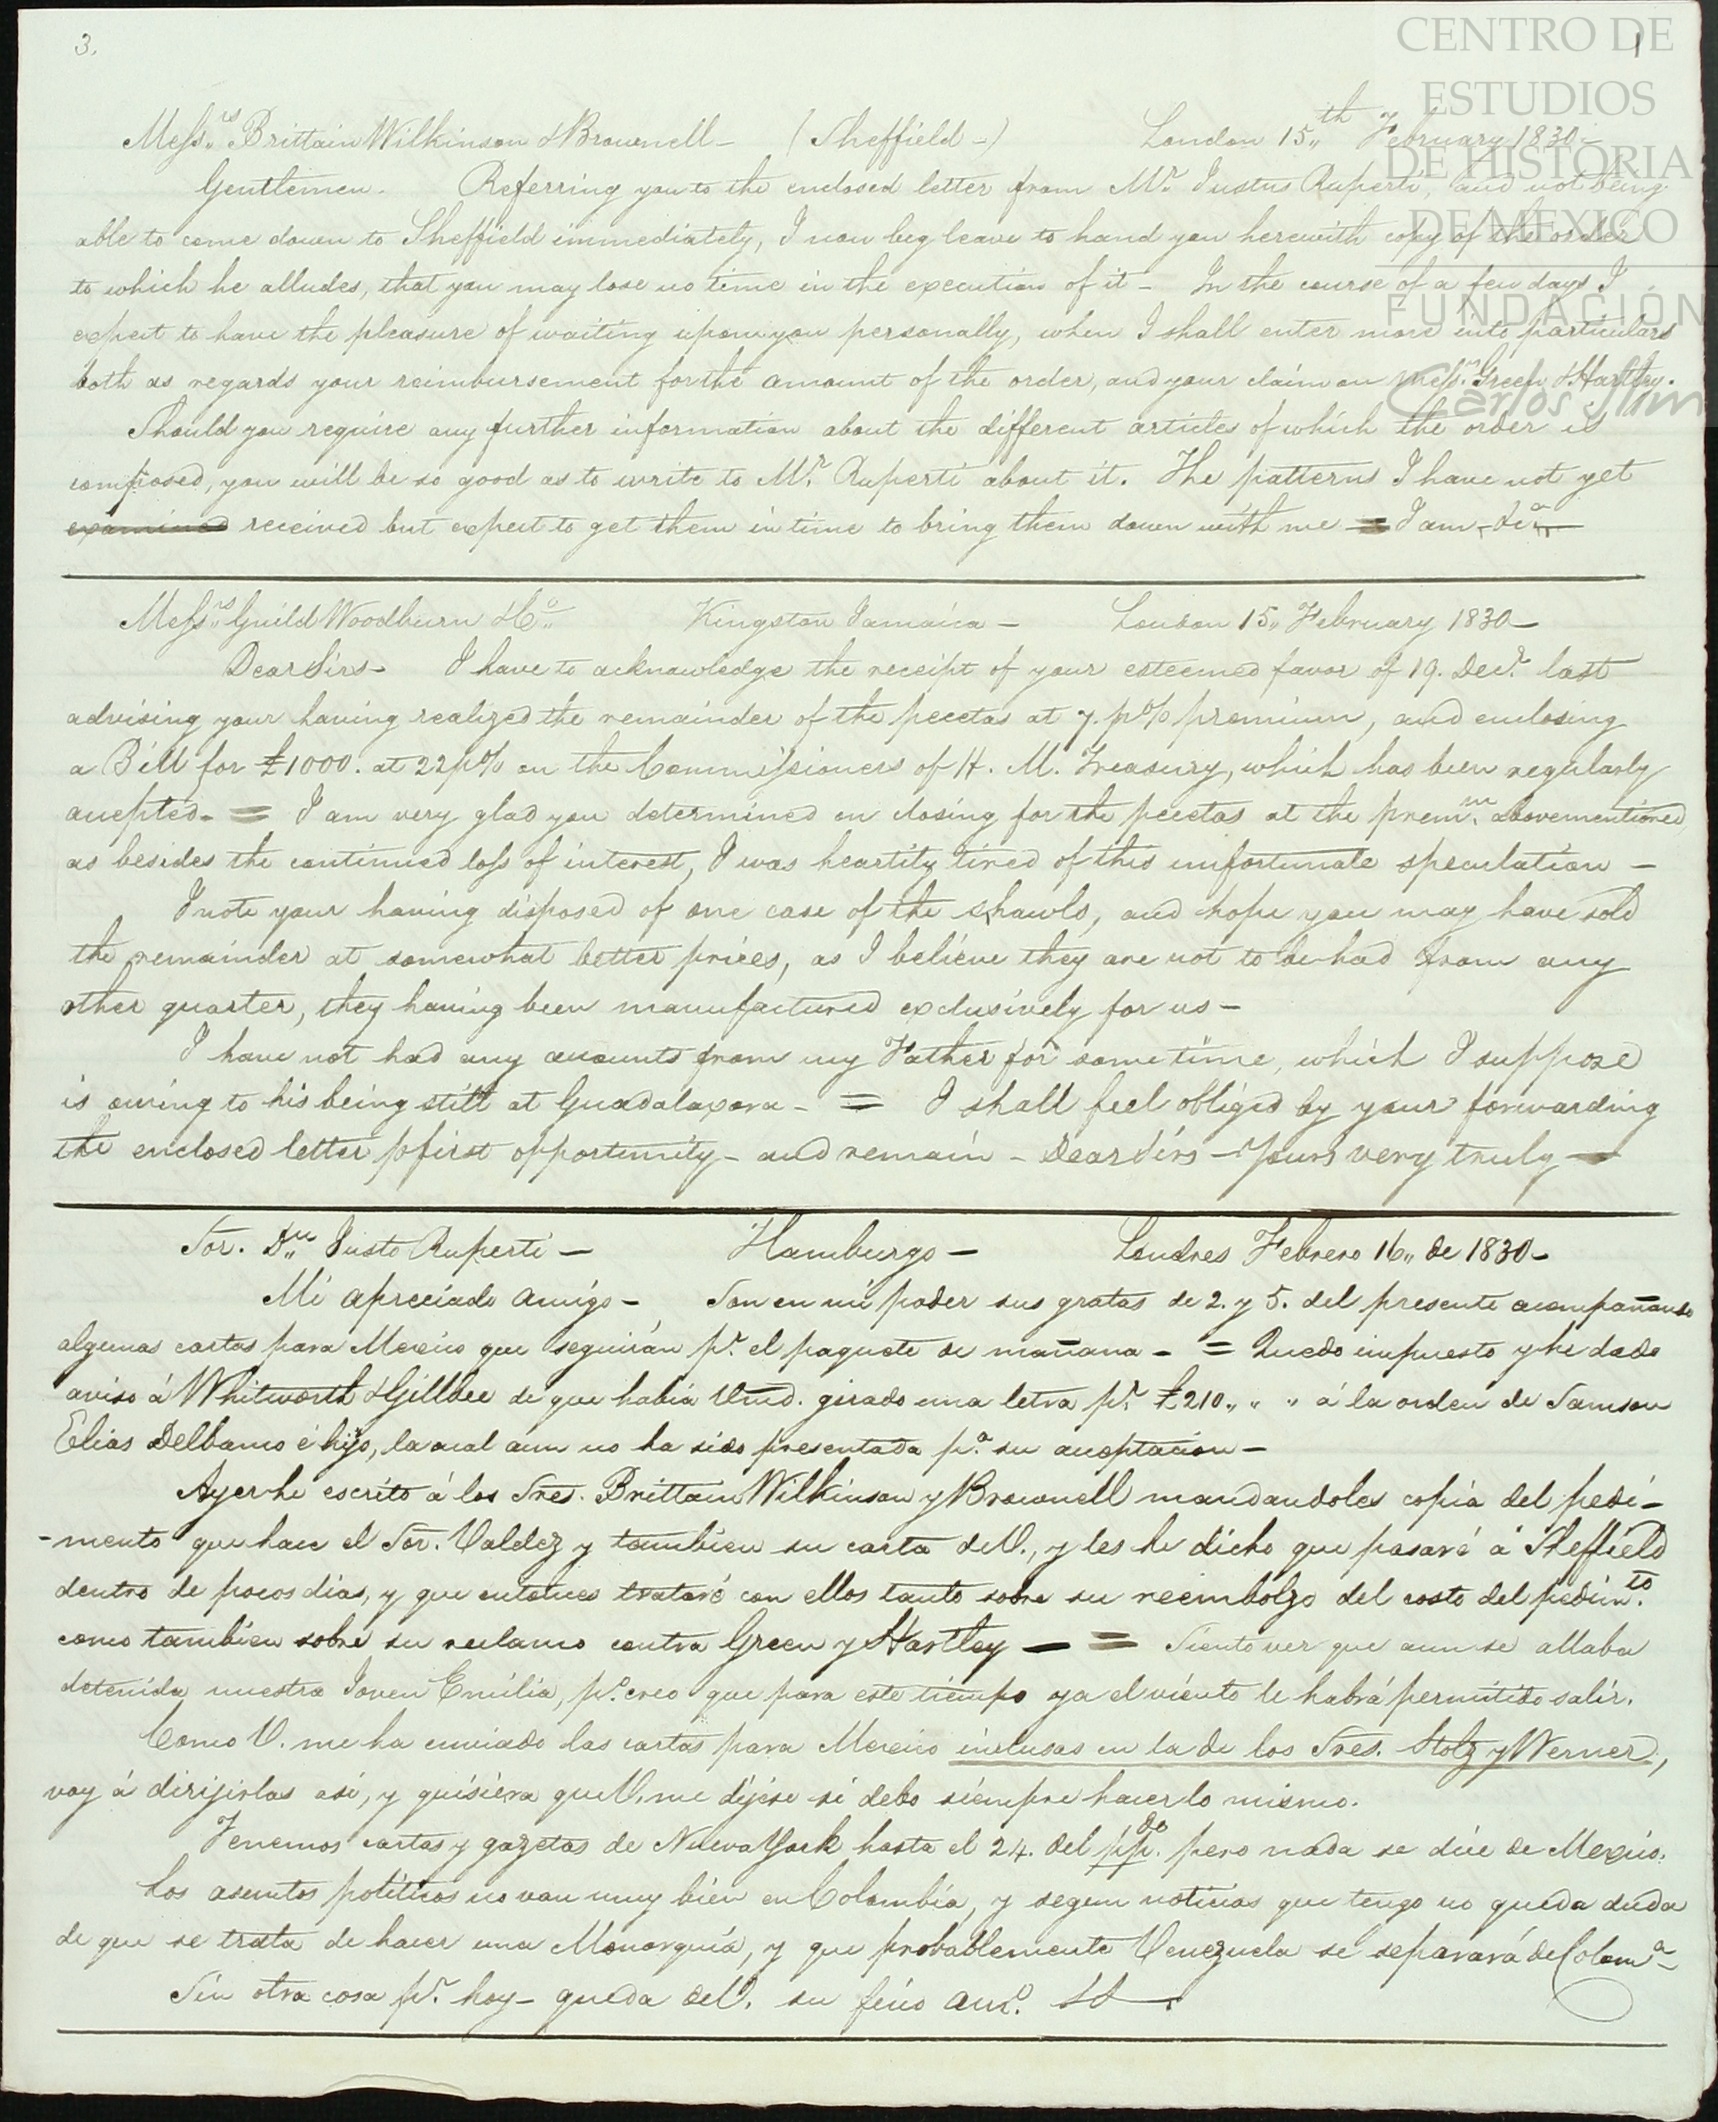 3.
1
CENTRO DE
ESTUDIOS
DE HISTORIA
DE MEXICO
FUNDACIÓN
Carlos Slim
Messrs. Brittain Wilkinson & Brownell – (Sheffield –) London 15th February 1830 –
Gentlemen. Referring you to the enclosed letter from Mr. Justus Ruperti, and not being
able to come down to Sheffield immediately, I now beg leave to hand you herewith copy of the order
to which he alludes, that you may lose no time in the execution of it – In the course of a few days I
expect to have the pleasure of waiting upon you personally, when I shall enter more into particulars
both as regards your reimbursement for the amount of the order, and your claim on Messrs. Green & Hartley.
Should you require any further information about the different articles of which the order is
composed, you will be so good as to write to Mr. Ruperti about it. The patterns I have not yet
examined received but expect to get them in time to bring them down with me = I am
Messrs. Guild Woodburn & Co. Kingston Jamaica – London 15,, February 1830 –
Dear Sirs – I have to acknowledge the receipt of your esteemed favor of 19. Decr. last
advising your having realized the remainder of the pecetas at 7. p% premium, and enclosing
a Bill for £1000. at 22 p% on the Commissioners of H. M. Treasury, which has been regularly
accepted – = I am very glad you determined on closing for the pecetas at the premm. abovementioned
as besides the continued loss of interest, I was heartily tired of this unfortunate speculation –
I note your having disposed of one case of the shawls, and hope you may have sold
the remainder at somewhat better prices, as I believe they are not to be had from any
other quarter, they having been manufactured exclusively for us –
I have not had any accounts from my Father for some time, which I suppose
is owing to his being still at Guadalaxara – = I shall feel obliged by your forwarding
the enclosed letter p first opportunity – and remain – Dear Sirs – Yours very truly –
Sor. Dn. Justo Ruperti – Hamburgo – Londres Febrero 16,, de 1830 –
Mi apreciado amigo – Son en mi poder sus gratas de 2. y 5. del presente acompañando
algunas cartas para Mexico que seguirán pr. el paquete de mañana – = Quedo impuesto y he dado
aviso á Whitworth & Gillbee de que habia Vmd. girado una letra pr. £210,, " " á la orden de Samson
Elias Delbanco é hijo, la cual aun no ha sido presentada pa. su aceptacion –
Ayer he escrito á los Sres. Brittain Wilkinson y Brownell mandandoles copia del pedi-
-mento que hace el Sor. Valdez y tambien su carta de V., y les he dicho que pasaré á Sheffield
dentro de pocos dias, y que entonces trataré con ellos tanto sobre su reembolzo del costo del pedimto.
como tambien sobre su reclamo contra Green y Hartley – = Siento ver que aun se allaba
detenida nuestra Joven Emilia, po. creo que para este tiempo ya el viento le habrá permitido salir.
Como V. me ha enviado las cartas para Mexico inclusas en la de los Sres. Stolz y Werner,
voy á dirijirlas asi, y quisiera que V. me dijese si debo siempre hacerlo mismo.
Tenemos cartas y gazetas de Nueva York hasta el 24. del ppdo. pero nada se dice de Mexico.
Los asuntos politicos no van muy bien en Colombia, y segun noticias que tengo no queda duda
de que se trata de hacer una Monarquia, y que probablemente Venezuela se separará de Coloma.
Sin otra cosa pr. hoy – queda de V. su fino amo.